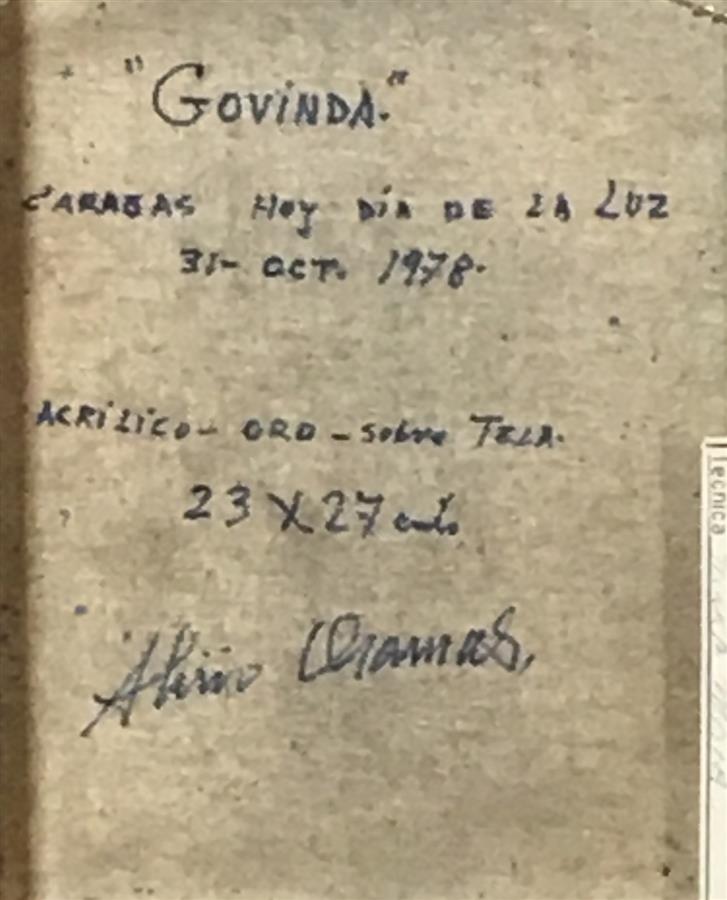 "GOVINDA."
CARACAS HOY DÍA DE LA LUZ
31- OCT. 1978.
ACRÍLICO - ORO - sobre TELA.
23 X 27 cmts
Alirio Oramas.
Tecnica